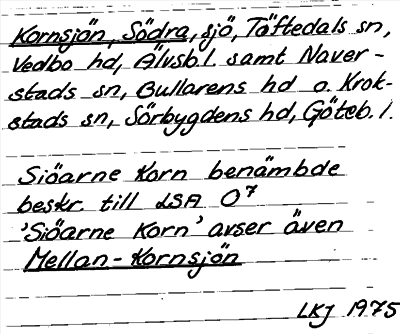 Kornsjön, Södra, sjö, Töftedals sn,
Vedbo hd, Älvsb.l. samt Naver-
stads sn, Bullarens hd o. Krok-
stads sn, Sörbygdens hd, Göteb. l.
Siöarne Korn benämbde
beskr. till LSA O⁷
'Siöarne Korn' avser även
Mellan-Kornsjön
LKJ 1975